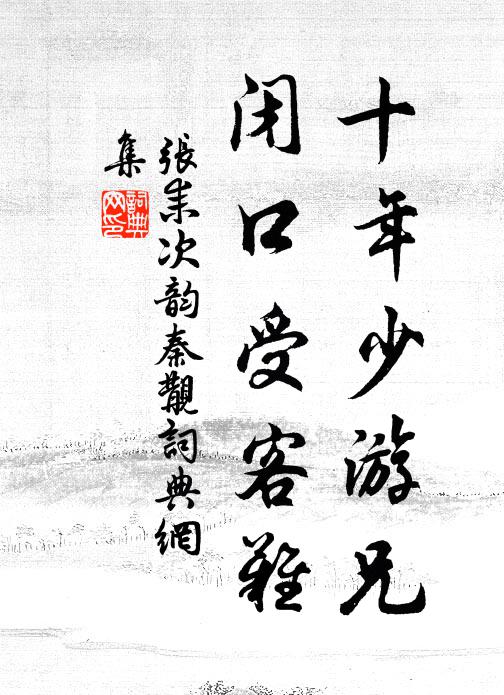 十年少游兄
闭口受客難
張耒次韵秦觀詞典網
集
詞典网印